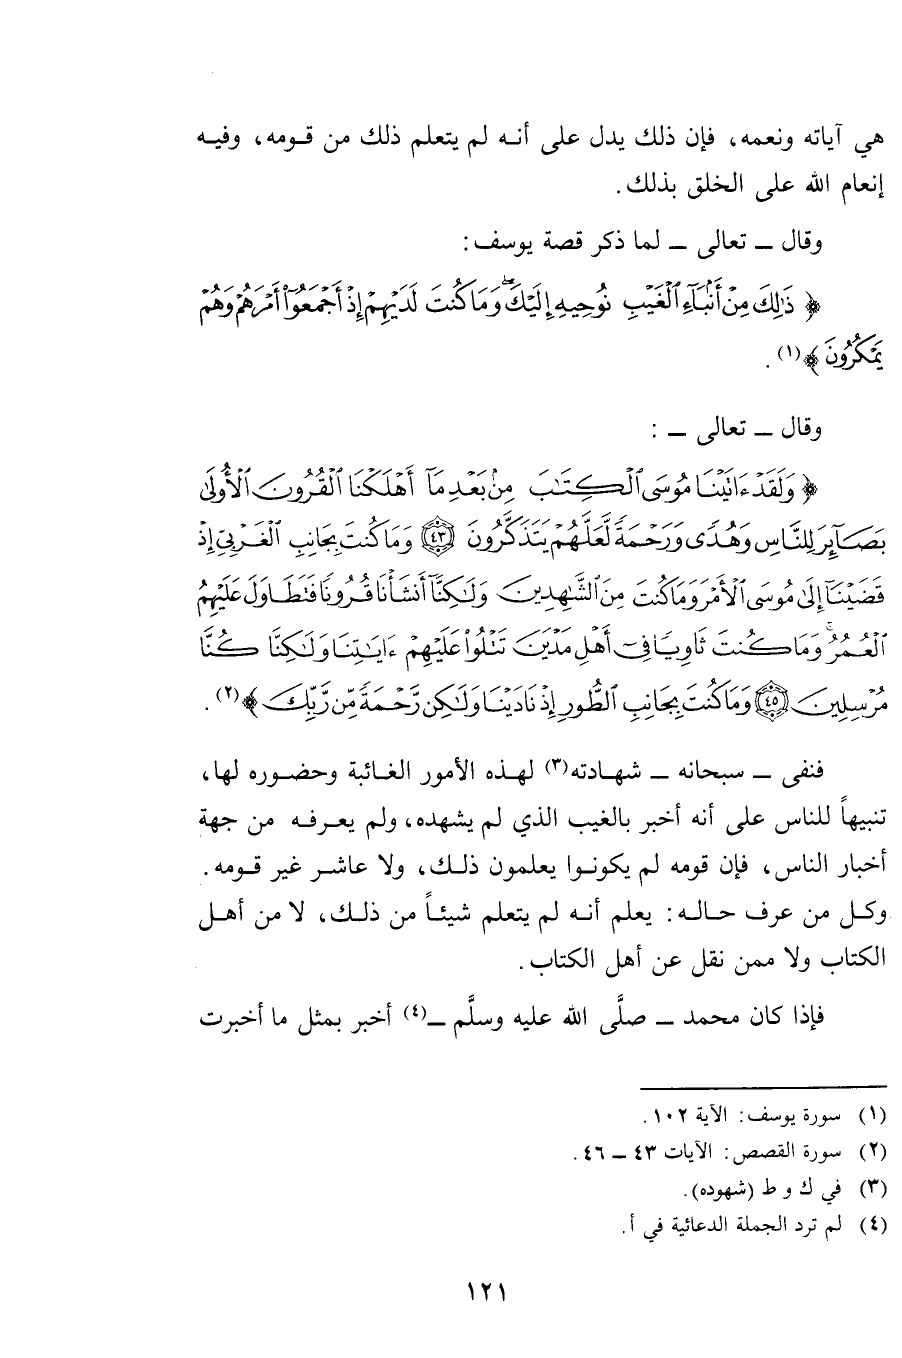 هي آياته ونعمه، فإن ذلك يدل على أنه لم يتعلم ذلك من قومه، وفيه
إنعام الله على الخلق بذلك.
وقال ــ تعالى ــ لما ذكر قصة يوسف:
﴿ ذَٰلِكَ مِنْ أَنۢبَآءِ ٱلْغَيْبِ نُوحِيهِ إِلَيْكَ ۖ وَمَا كُنتَ لَدَيْهِمْ إِذْ أَجْمَعُوٓا۟ أَمْرَهُمْ وَهُمْ
يَمْكُرُونَ ﴾(١).
وقال ــ تعالى ــ :
﴿ وَلَقَدْ ءَاتَيْنَا مُوسَى ٱلْكِتَٰبَ مِنۢ بَعْدِ مَآ أَهْلَكْنَا ٱلْقُرُونَ ٱلْأُولَىٰ
بَصَآئِرَ لِلنَّاسِ وَهُدًى وَرَحْمَةً لَّعَلَّهُمْ يَتَذَكَّرُونَ ﴿٤٣﴾ وَمَا كُنتَ بِجَانِبِ ٱلْغَرْبِىِّ إِذْ
قَضَيْنَآ إِلَىٰ مُوسَى ٱلْأَمْرَ وَمَا كُنتَ مِنَ ٱلشَّٰهِدِينَ وَلَٰكِنَّآ أَنشَأْنَا قُرُونًا فَتَطَاوَلَ عَلَيْهِمُ
ٱلْعُمُرُ ۚ وَمَا كُنتَ ثَاوِيًا فِىٓ أَهْلِ مَدْيَنَ تَتْلُوا۟ عَلَيْهِمْ ءَايَٰتِنَا وَلَٰكِنَّا كُنَّا
مُرْسِلِينَ ﴿٤٥﴾ وَمَا كُنتَ بِجَانِبِ ٱلطُّورِ إِذْ نَادَيْنَا وَلَٰكِن رَّحْمَةً مِّن رَّبِّكَ ﴾(٢).
فنفى ــ سبحانه ــ شهادته(٣) لهذه الأمور الغائبة وحضوره لها،
تنبيهاً للناس على أنه أخبر بالغيب الذي لم يشهده، ولم يعرفه من جهة
أخبار الناس، فإن قومه لم يكونوا يعلمون ذلك، ولا عاشر غير قومه.
وكل من عرف حاله: يعلم أنه لم يتعلم شيئاً من ذلك، لا من أهل
الكتاب ولا ممن نقل عن أهل الكتاب.
فإذا كان محمد ــ صلَّى الله عليه وسلَّم ــ(٤) أخبر بمثل ما أخبرت
(١) سورة يوسف: الآية ١٠٢.
(٢) سورة القصص: الآيات ٤٣ ــ ٤٦.
(٣) في ك و ط (شهوده).
(٤) لم ترد الجملة الدعائية في أ.
١٢١